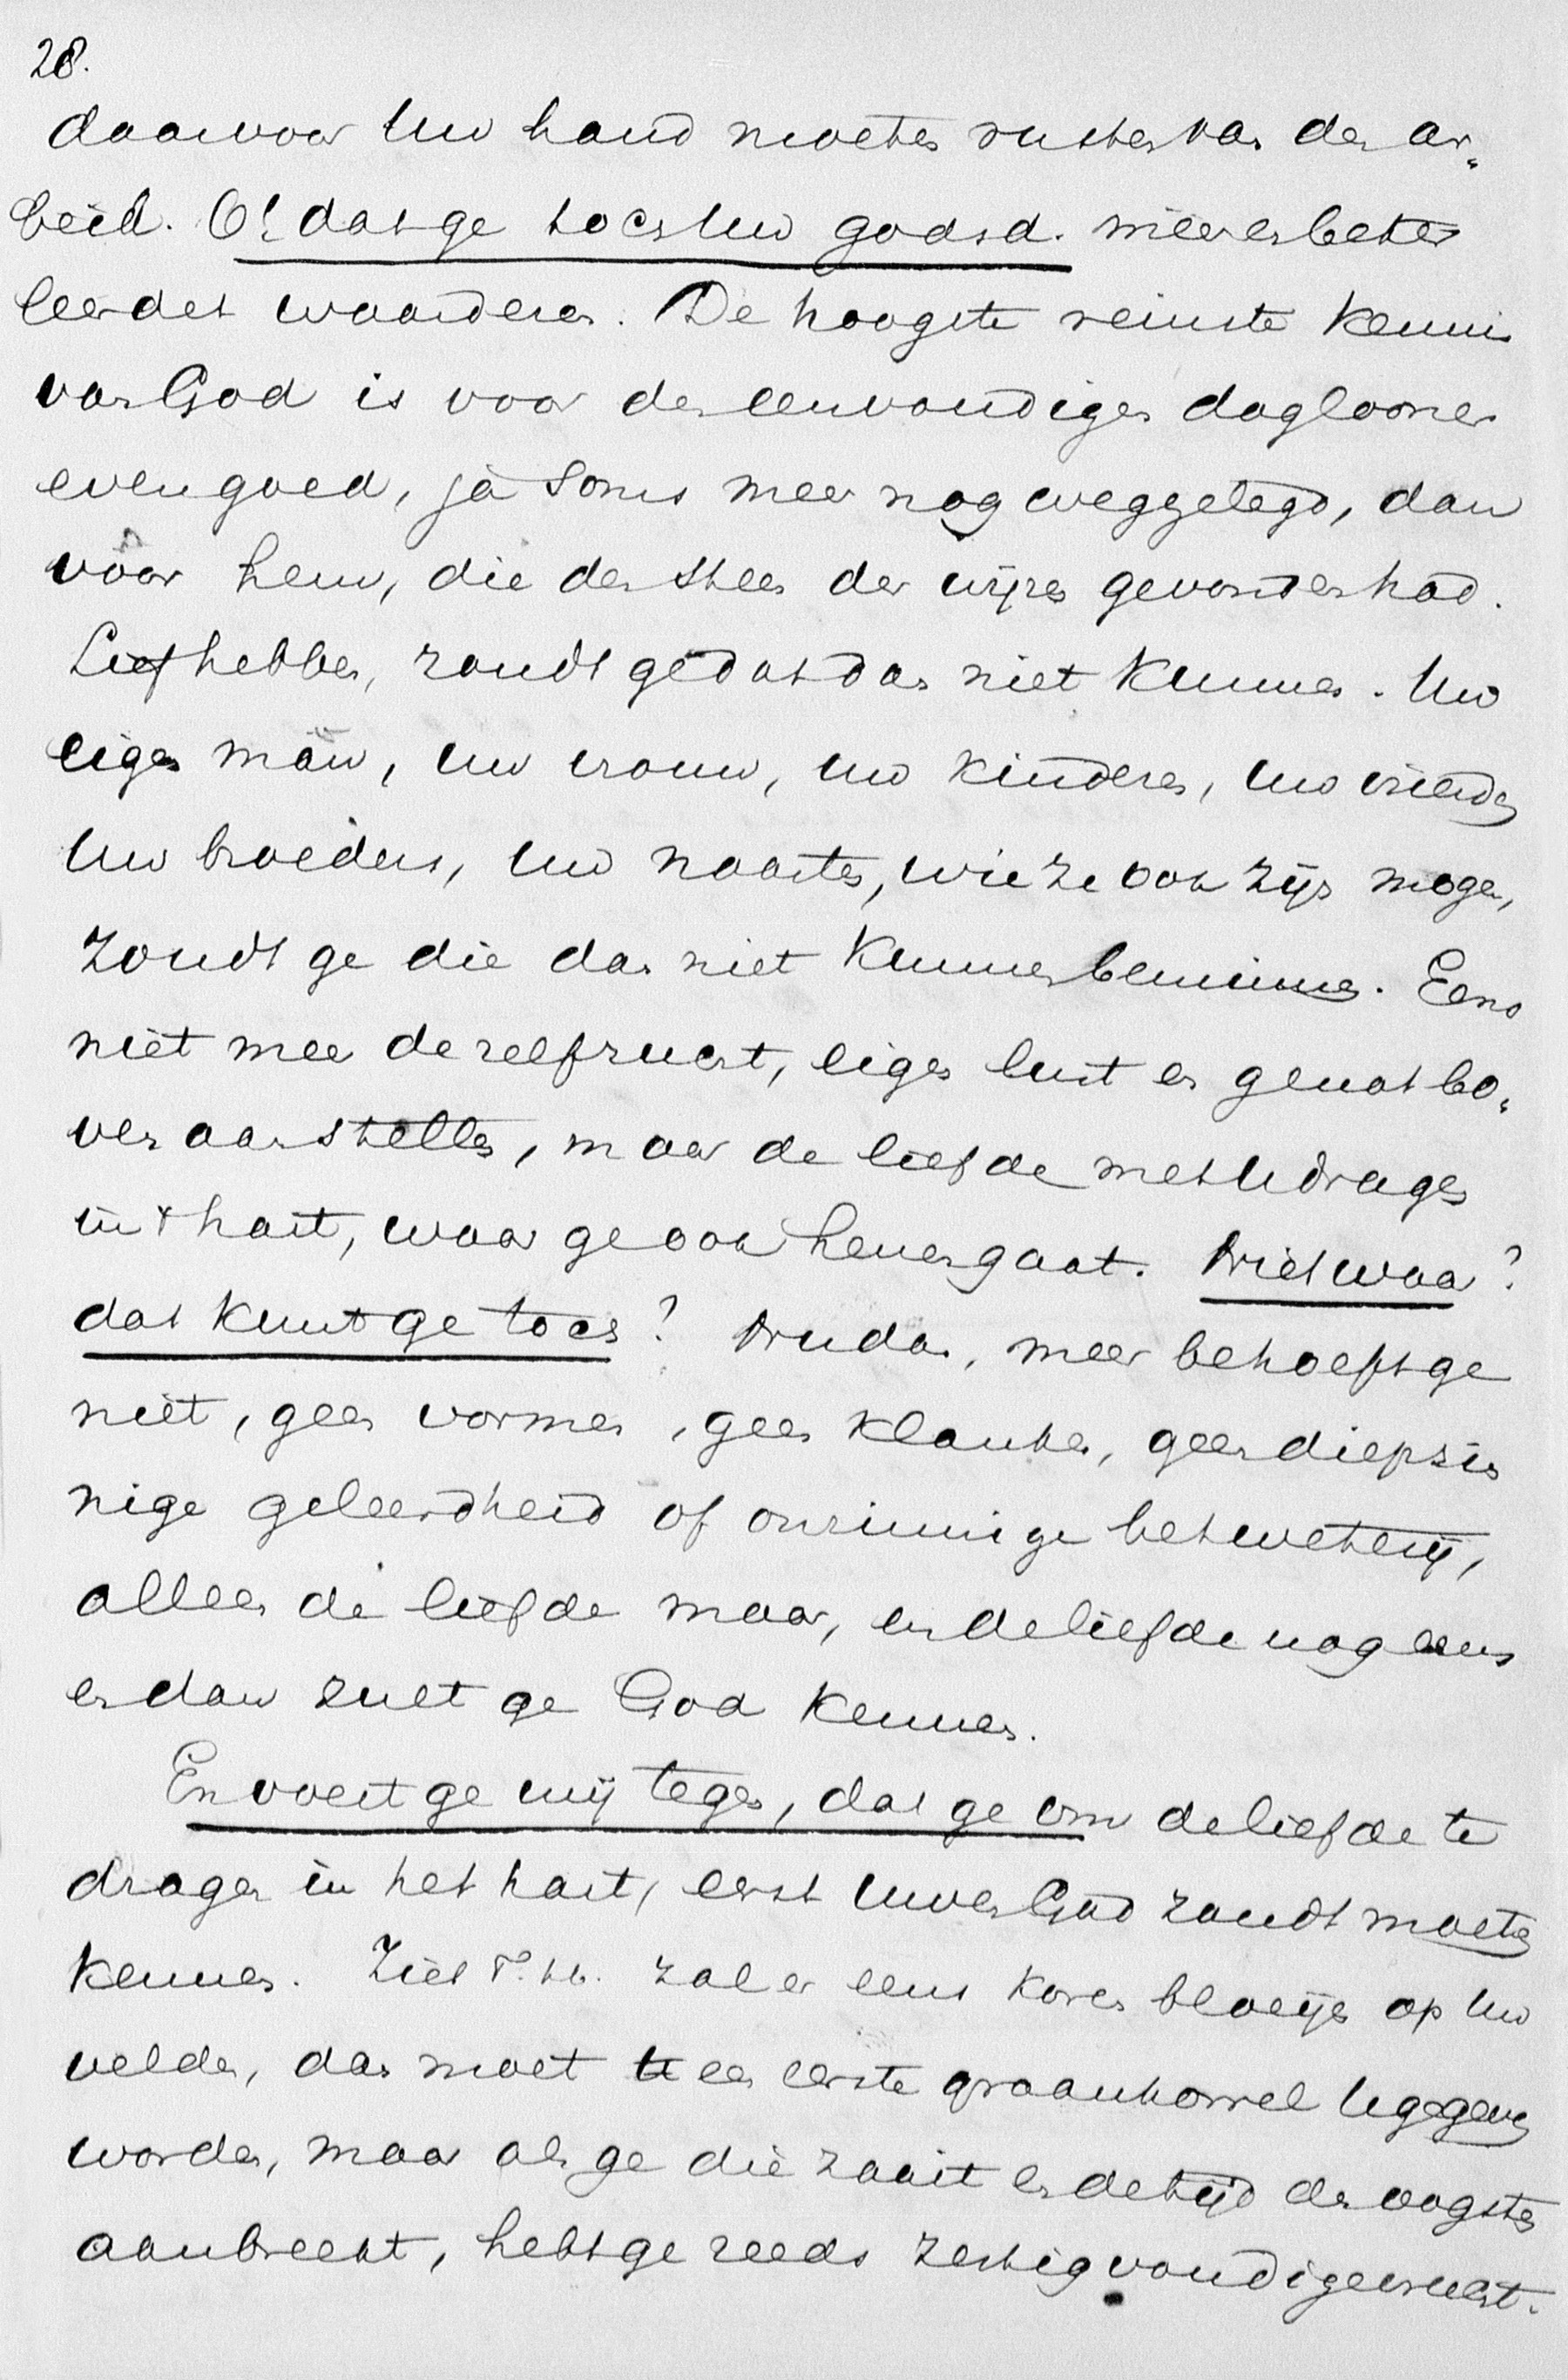 28.
daarvoor Uw hand moeten rusten van den ar-
beid. O! dat ge toch Uw godsd. meer en beter
leerdet waarderen. De hoogste reinste kennis
van God is voor den eenvoudigen daglooner
even goed, ja soms meer nog weggelegd, dan
voor hem, die den steen der wijzen gevonden had.
Liefhebben, zoudt ge dat dan niet kunnen. Uw
eigen man, uw vrouw, uw kinderen, uw vrienden
Uw broeders, uw naasten, wie ze ook zijn mogen,
zoudt ge die dan niet kunnen beminnen. Eens
niet meer de zelfzucht, eigen lust en genot bo-
ven aan stellen, maar de liefde met U dragen
in 't hart, waar ge ook henen gaat. Niet waar?
dat kunt ge toch? Nu dan, meer behoeft ge
niet, geen vormen, geen klanken, geen diepzin
nige geleerdheid of onzinnige betweterij,
alleen de liefde maar, en de liefde nog eens
en dan zult ge God kennen.
En voert ge mij tegen, dat ge om de liefde te
dragen in het hart, eerst uwen God zoudt moeten
kennen. Ziet T. zal er eens koren bloeijen op Uw
velden, dan moet U een eerste graankorrel U gegeven
worden, maar als ge die zaait en de tijd des oogstes
aanbreekt, hebt ge reeds zestigvoudige vrucht.